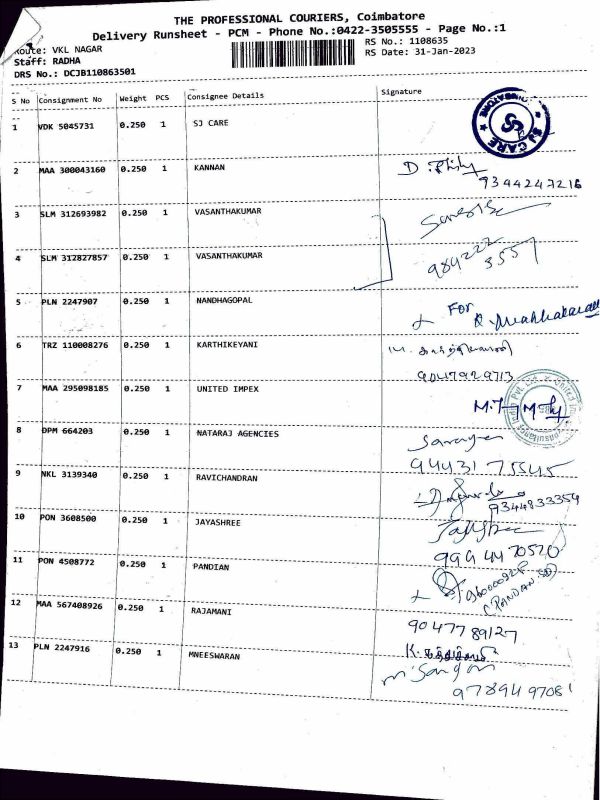 THE PROFESSIONAL COURIERS, Coimbatore
Delivery Runsheet - PCM - Phone No.:0422-3505555 - Page No.:1
Route: VKL NAGAR
RS No.: 1108635
Staff: RADHA
RS Date: 31-Jan-2023
DRS No.: DCJB110863501
S No Consignment No Weight PCS Consignee Details Signature
1 VDK 5045731 0.250 1 SJ CARE
SJ CARE
2 MAA 300043160 0.250 1 KANNAN
9344247216
3 SLM 312693982 0.250 1 VASANTHAKUMAR
4 SLM 312827857 0.250 1 VASANTHAKUMAR
984222
3557
5 PLN 2247907 0.250 1 NANDHAGOPAL
For
6 TRZ 110008276 0.250 1 KARTHIKEYANI
9047929713
7 MAA 295098185 0.250 1 UNITED IMPEX
8 DPM 664203 0.250 1 NATARAJ AGENCIES
94431 75545
9 NKL 3139340 0.250 1 RAVICHANDRAN
9344833354
10 PON 3608500 0.250 1 JAYASHREE
Jayshree
999 44 70520
11 PON 4508772 0.250 1 PANDIAN
12 MAA 567408926 0.250 1 RAJAMANI
90477 89127
13 PLN 2247916 0.250 1 MNEESWARAN
97894 97081